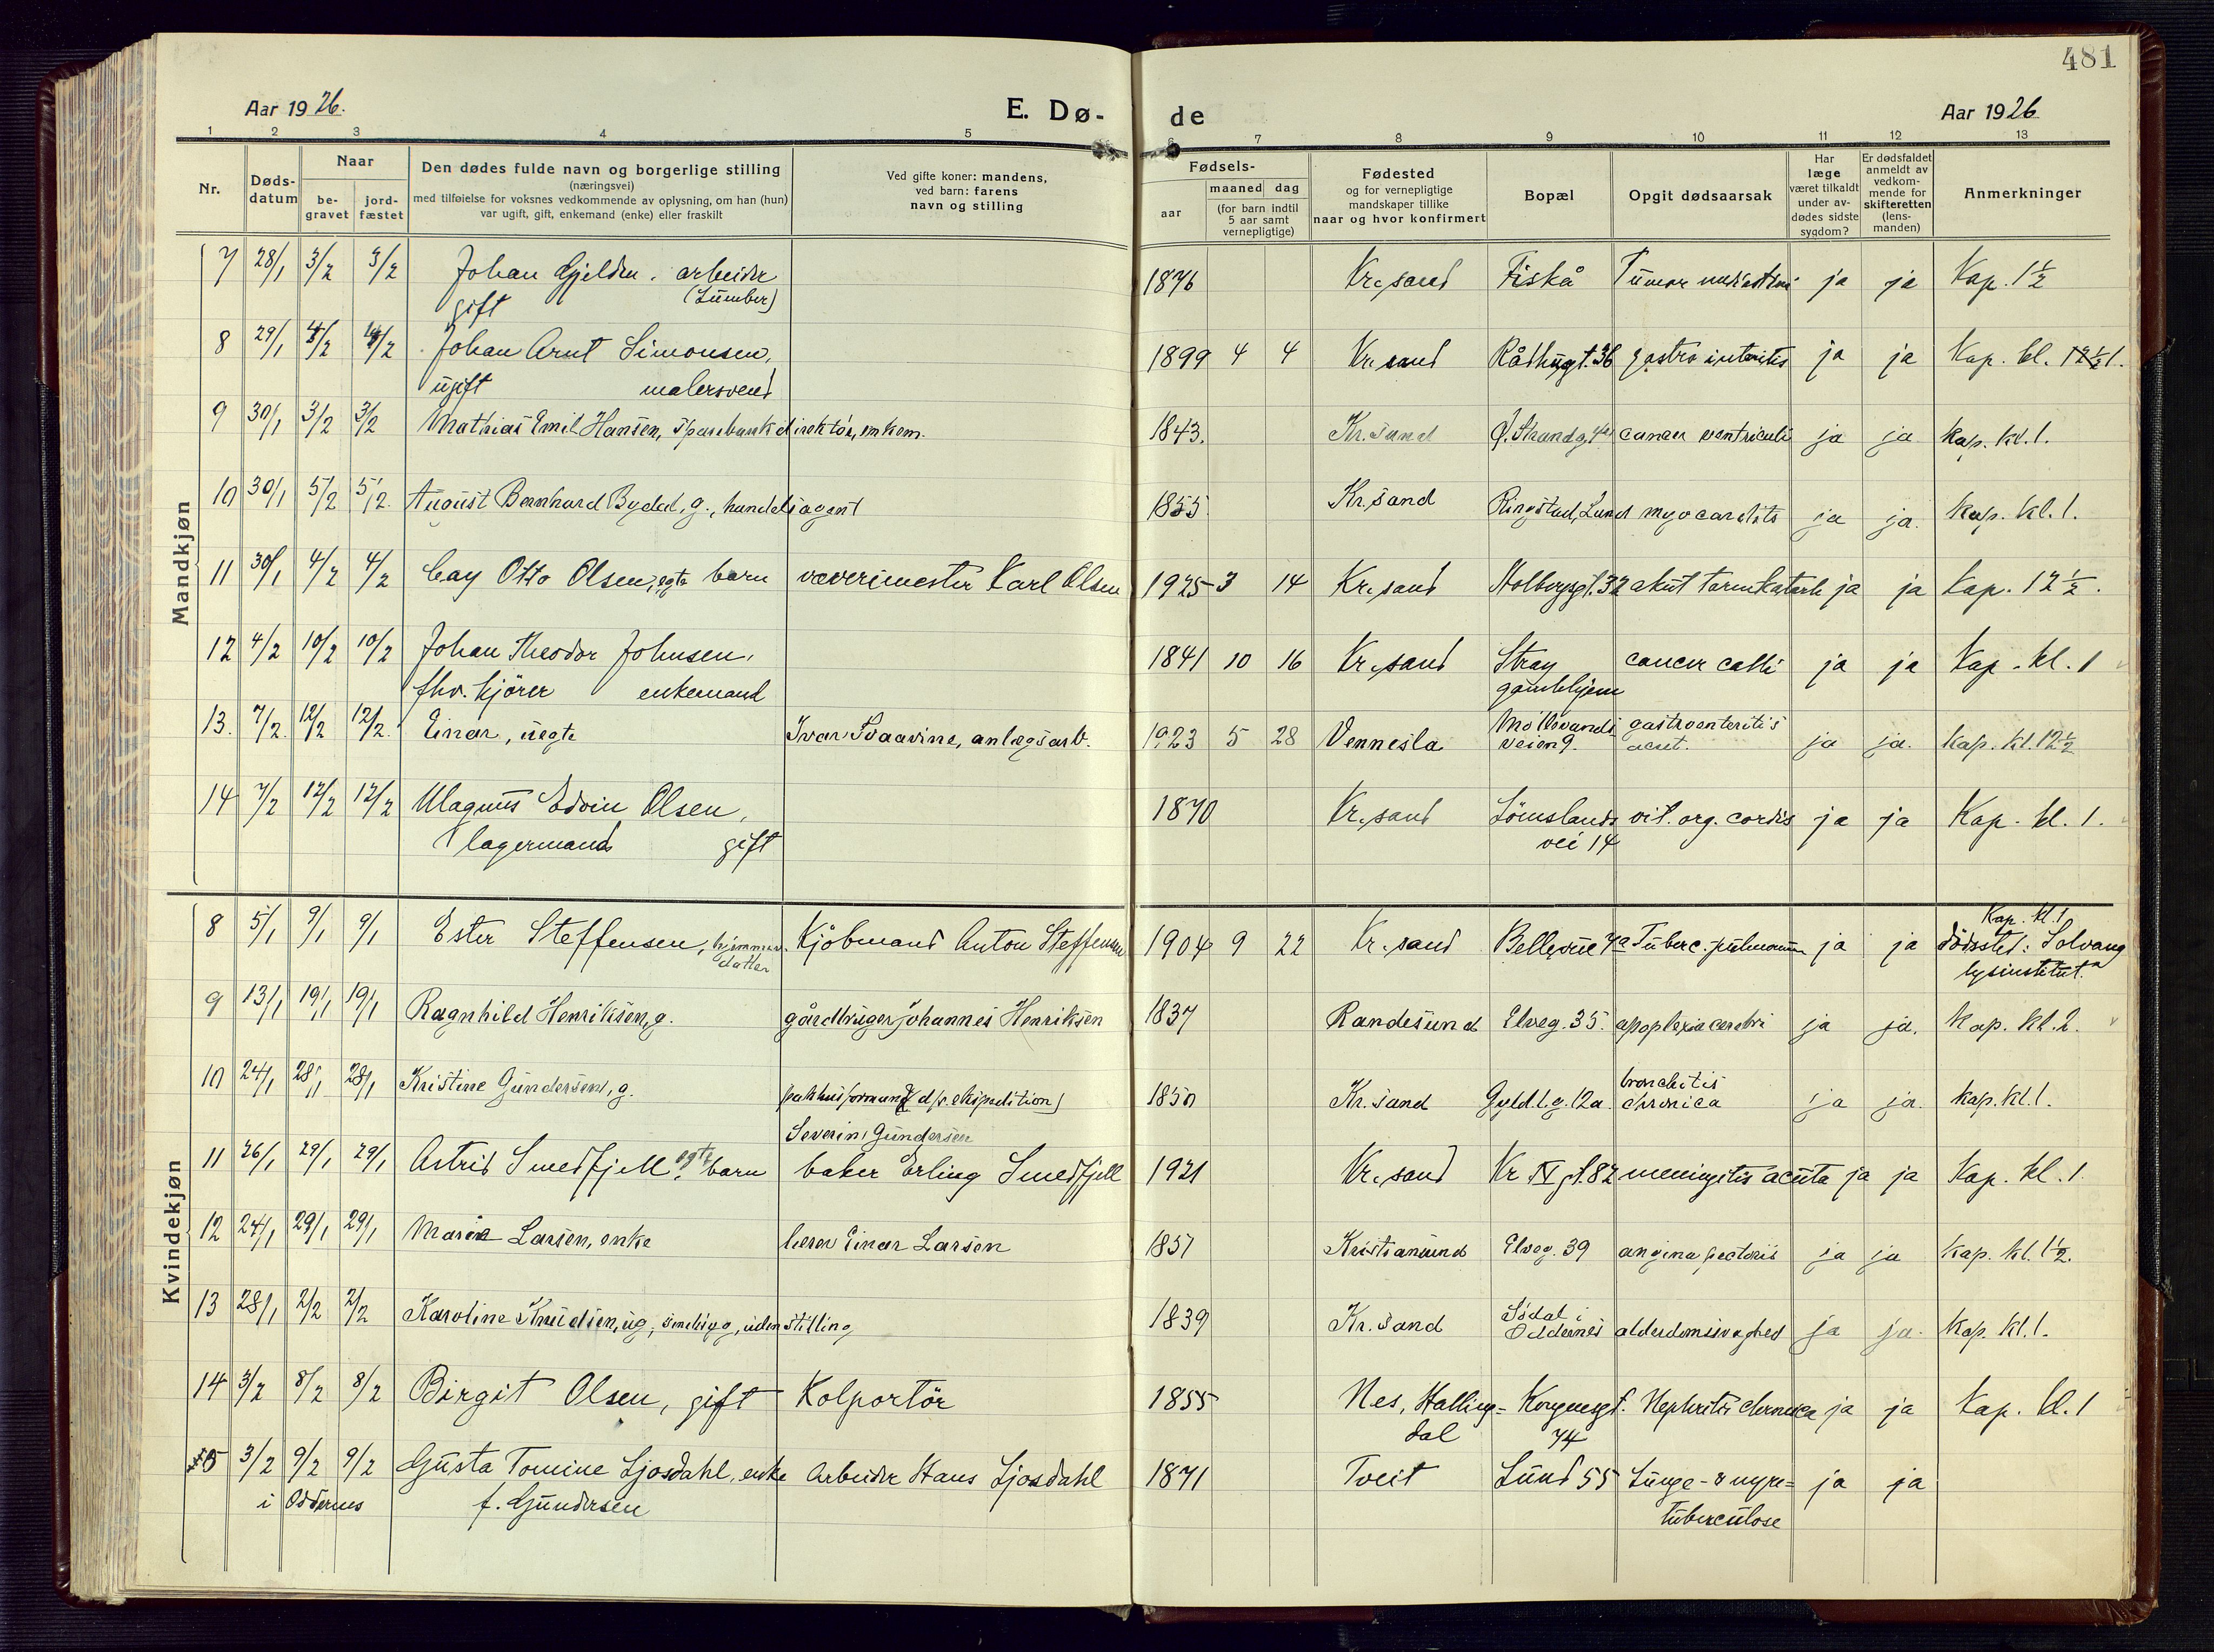 481
Aar 1926.
E. Dø-
de
Aar 1926
1 2 3 4 5 6 7 8 9 10 11 12 13
Nr.
Døds-
datum
Naar
be-
gravet
jord-
fæstet
Den dødes fulde navn og borgerlige stilling
(næringsvei)
med tilføielse for voksnes vedkommende av oplysning, om han (hun)
var ugift, gift, enkemand (enke) eller fraskilt
Ved gifte koner: mandens,
ved barn: farens
navn og stilling
Fødsels-
aar
maaned dag
(for barn indtil
5 aar samt
vernepligtige)
Fødested
og for vernepligtige
mandskaper tillike
naar og hvor konfirmert
Bopæl
Opgit dødsaarsak
Har
læge
været tilkaldt
under av-
dødes sidste
sygdom?
Er dødsfaldet
anmeldt av
vedkom-
mende for
skifteretten
(lens-
manden)
Anmerkninger
Mandkjøn
7 28/1 3/2 3/2 Johan Gjelden. arbeider 1876 Kr.sand Fiskå Tumor mediastini ja ja Kap. 1½
gift (Lumber)
8 29/1 4/2 Johan Arnt Simonsen, 1899 4 4 Kr.sand Rådhusgt. 36 gastro interitis ja ja Kap. kl. 1.
ugift malersvend
9 30/1 3/2 3/2 Mathias Emil Hansen, sparebankdirektør, enkem. 1843. Kr.sand Ø. Strandg. cancer ventriculi ja ja kap. kl. 1.
10 30/1 5/2 5/2. August Bernhard Bydel, g., handelsagent 1855. Kr.sand Ringstad, Lund myocarditis ja ja. kap. kl. 1.
11 30/1 4/2 4/2 Cay Otto Olsen, egte barn væverimester Karl Olsen 1925 3 14 Kr.sand Holbergsgt. 32 akut tarmkatarh ja ja Kap. 12½.
12 4/2 10/2 10/2 Johan Theodor Johnsen, 1841 10 16 Kr.sand Stray cancer colli ja ja Kap. kl. 1
fhv. kjører enkemand gamlehjem
13. 7/2. 12/2 12/2. Einar, uegte Ivar Svaavine, anlegsarb. 1923 5 28 Vennesla Møllevands gastroenteritis ja ja. kap. kl. 12½
veien 9. acut.
14 7/2 12/2 12/2 Magnus Edvin Olsen, 1870 Kr.sand Sömslands vit. org. cordis ja ja Kap. kl. 1.
lagermand gift vei 14
Kvindekjøn
8 5/1 9/1 9/1 Ester Steffensen, hjemmev. Kjöbmand Anton Steffensen 1904 9 22 Kr.sand Bellevue Tuberc. pulmonum ja ja Kap. kl. 1
datter dödssted: Solvang
lysinstitut.
9 13/1 19/1 19/1 Ragnhild Henriksen, g. gårdbruger Johannes Henriksen 1837 Randesund Elveg. 35. apoplexia cerebri ja ja. kap. kl. 2.
10 24/1 28/1 28/1 Kristine Gundersen, g. pakhusformand d/s. ekspedition) 1850 Kr.sand Gyldl.g. 12a. bronchitis ja ja. kap. kl. 1.
Severin Gundersen chronica
11 26/1 29/1 29/1 Astrid Smedfjell, egte barn baker Erling Smedfjell 1921 Kr.sand Kr IV gt. 82 meningitis acuta ja ja Kap. kl. 1.
12 24/1 29/1 29/1 Maria Larsen, enke lærer Einar Larsen 1857 Kristiansund Elveg. 39 angina pectoris ja ja kap. kl. 1½.
13 28/1 2/2 2/2 Karoline Knudsen, ug, sindssyg, uden stilling 1839 Kr.sand Södal i alderdomssvaghed ja ja. kap. kl. 1.
Oddernes
14 3/2 8/2 8/2 Birgit Olsen, gift Kolportör 1855 Nes, Halling- Kongensgt. Nephritis chronica ja ja Kap. kl. 1
dal 74
15 3/2 9/2 9/2 Gusta Tomine Ljosdahl, enke Arbeider Hans Ljosdahl 1871 Tveit Lund 55 Lunge- & nyre- ja ja
i Oddernes f. Gundersen tuberculose